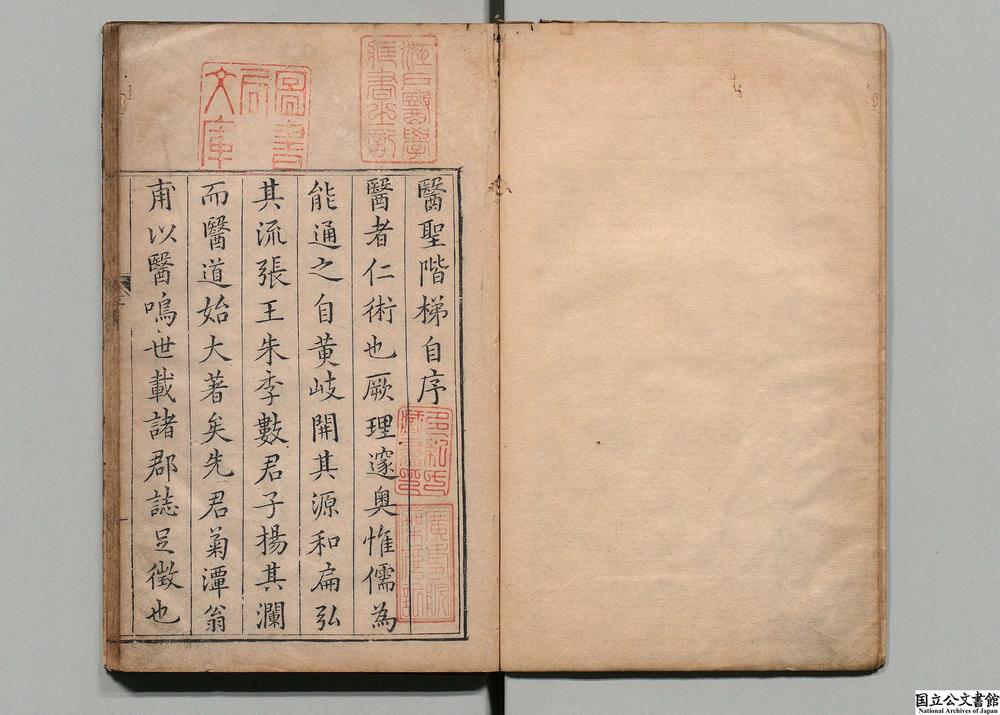 醫聖階梯自序
醫者仁術也厥理邃奧惟儒為
能通之自黄岐開其源和扁弘
其流張王朱李數君子揚其瀾
而醫道始大著矣先君菊潭翁
甫以醫鳴世載諸郡誌足徵也
圖書
局
文庫
江戸醫學
藏書之記
国立公文書館
National Archives of Japan